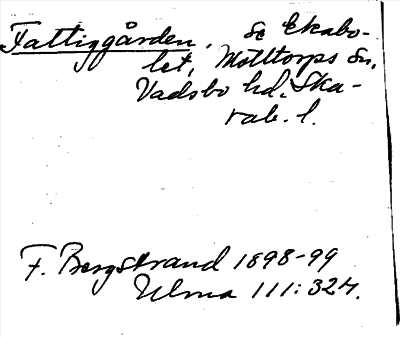 Fattiggården, se Ekabo-
let, Mölltorps sn,
Vadsbo hd. Ska-
rab. l.
F. Bergstrand 1898-99
Ulma 111: 324.